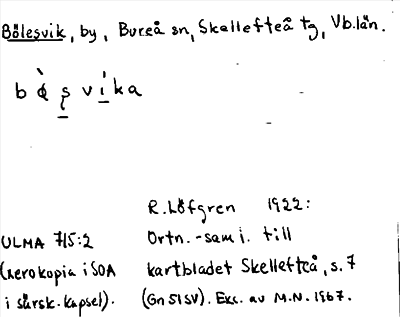 Bölesvik, by, Bureå sn, Skellefteå tg, Vb.län.
R. Löfgren 1922:
Ortn.-sam i. till
kartbladet Skellefteå, s. 7
(Gn 51 SV). Exc. av M.N. 1967.
ULMA 715:2
(xerokopia i SOA
i särsk. kapsel).